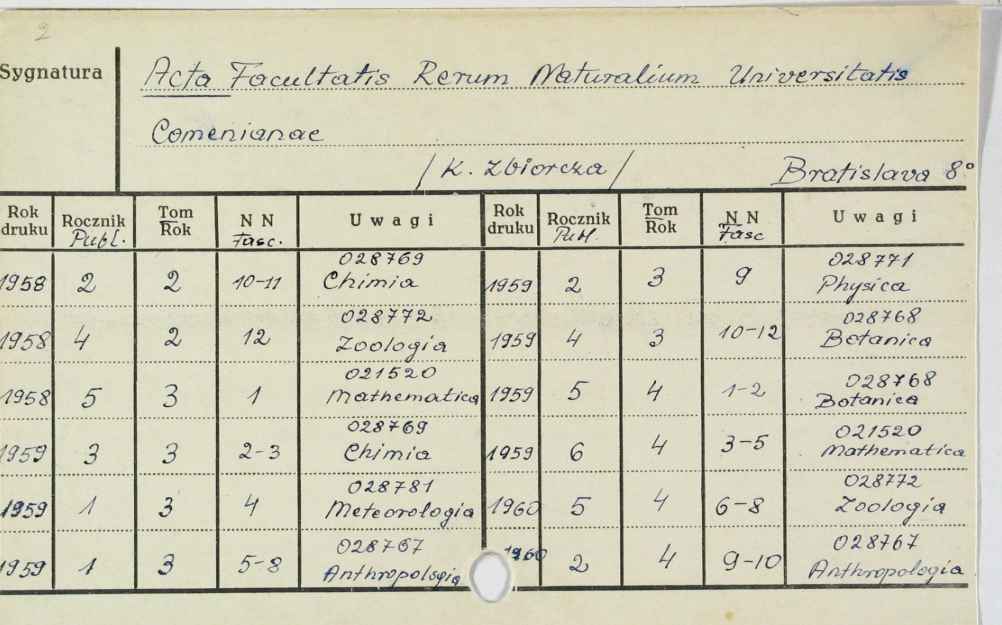 2
Sygnatura
Acta Facultatis Rerum Naturalium Universitatis
Comenianae
/K. Zbiorcza/ Bratislava 8°
Rok druku Rocznik Publ. Tom Rok N N Fasc. Uwagi Rok druku Rocznik Publ. Tom Rok N N Fasc Uwagi
1958 2 2 10-11 028769 Chimia 1959 2 3 9 028771 Physica
1958 4 2 12 028772 Zoologia 1959 4 3 10-12 028768 Botanica
1958 5 3 1 021520 Mathematica 1959 5 4 1-2 028768 Botanica
1959 3 3 2-3 028769 Chimia 1959 6 4 3-5 021520 Mathematica
1959 1 3 4 028781 Meteorologia 1960 5 4 6-8 028772 Zoologia
1959 1 3 5-8 028767 Anthropologia 1960 2 4 9-10 028767 Anthropologia